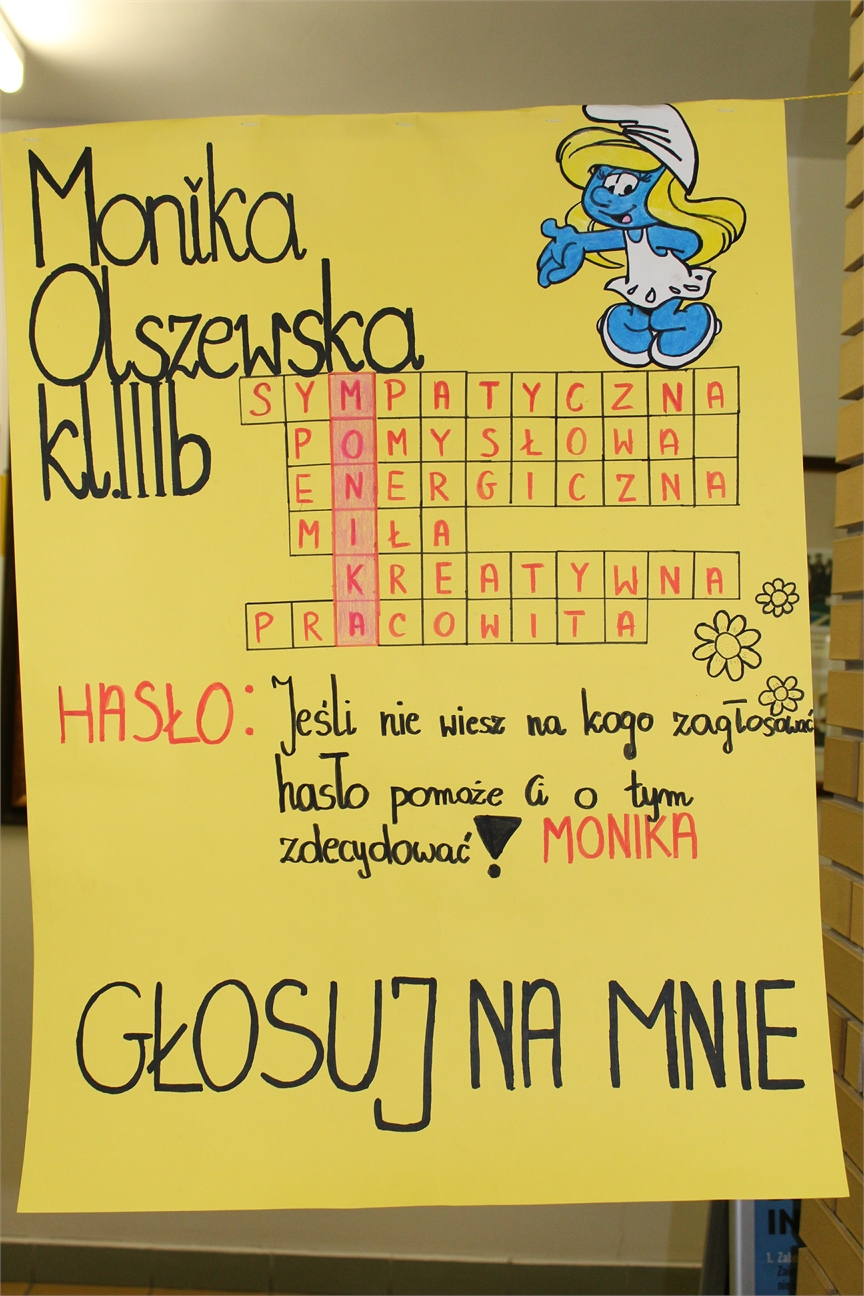 Monika
Olszewska
kl.IIIb
SYMPATYCZNA
POMYSŁOWA
ENERGICZNA
MIŁA
KREATYWNA
PRACOWITA
HASŁO: Jeśli nie wiesz na kogo zagłosować
hasło pomoże Ci o tym
zdecydować! MONIKA
GŁOSUJ NA MNIE
IN
1. Zab